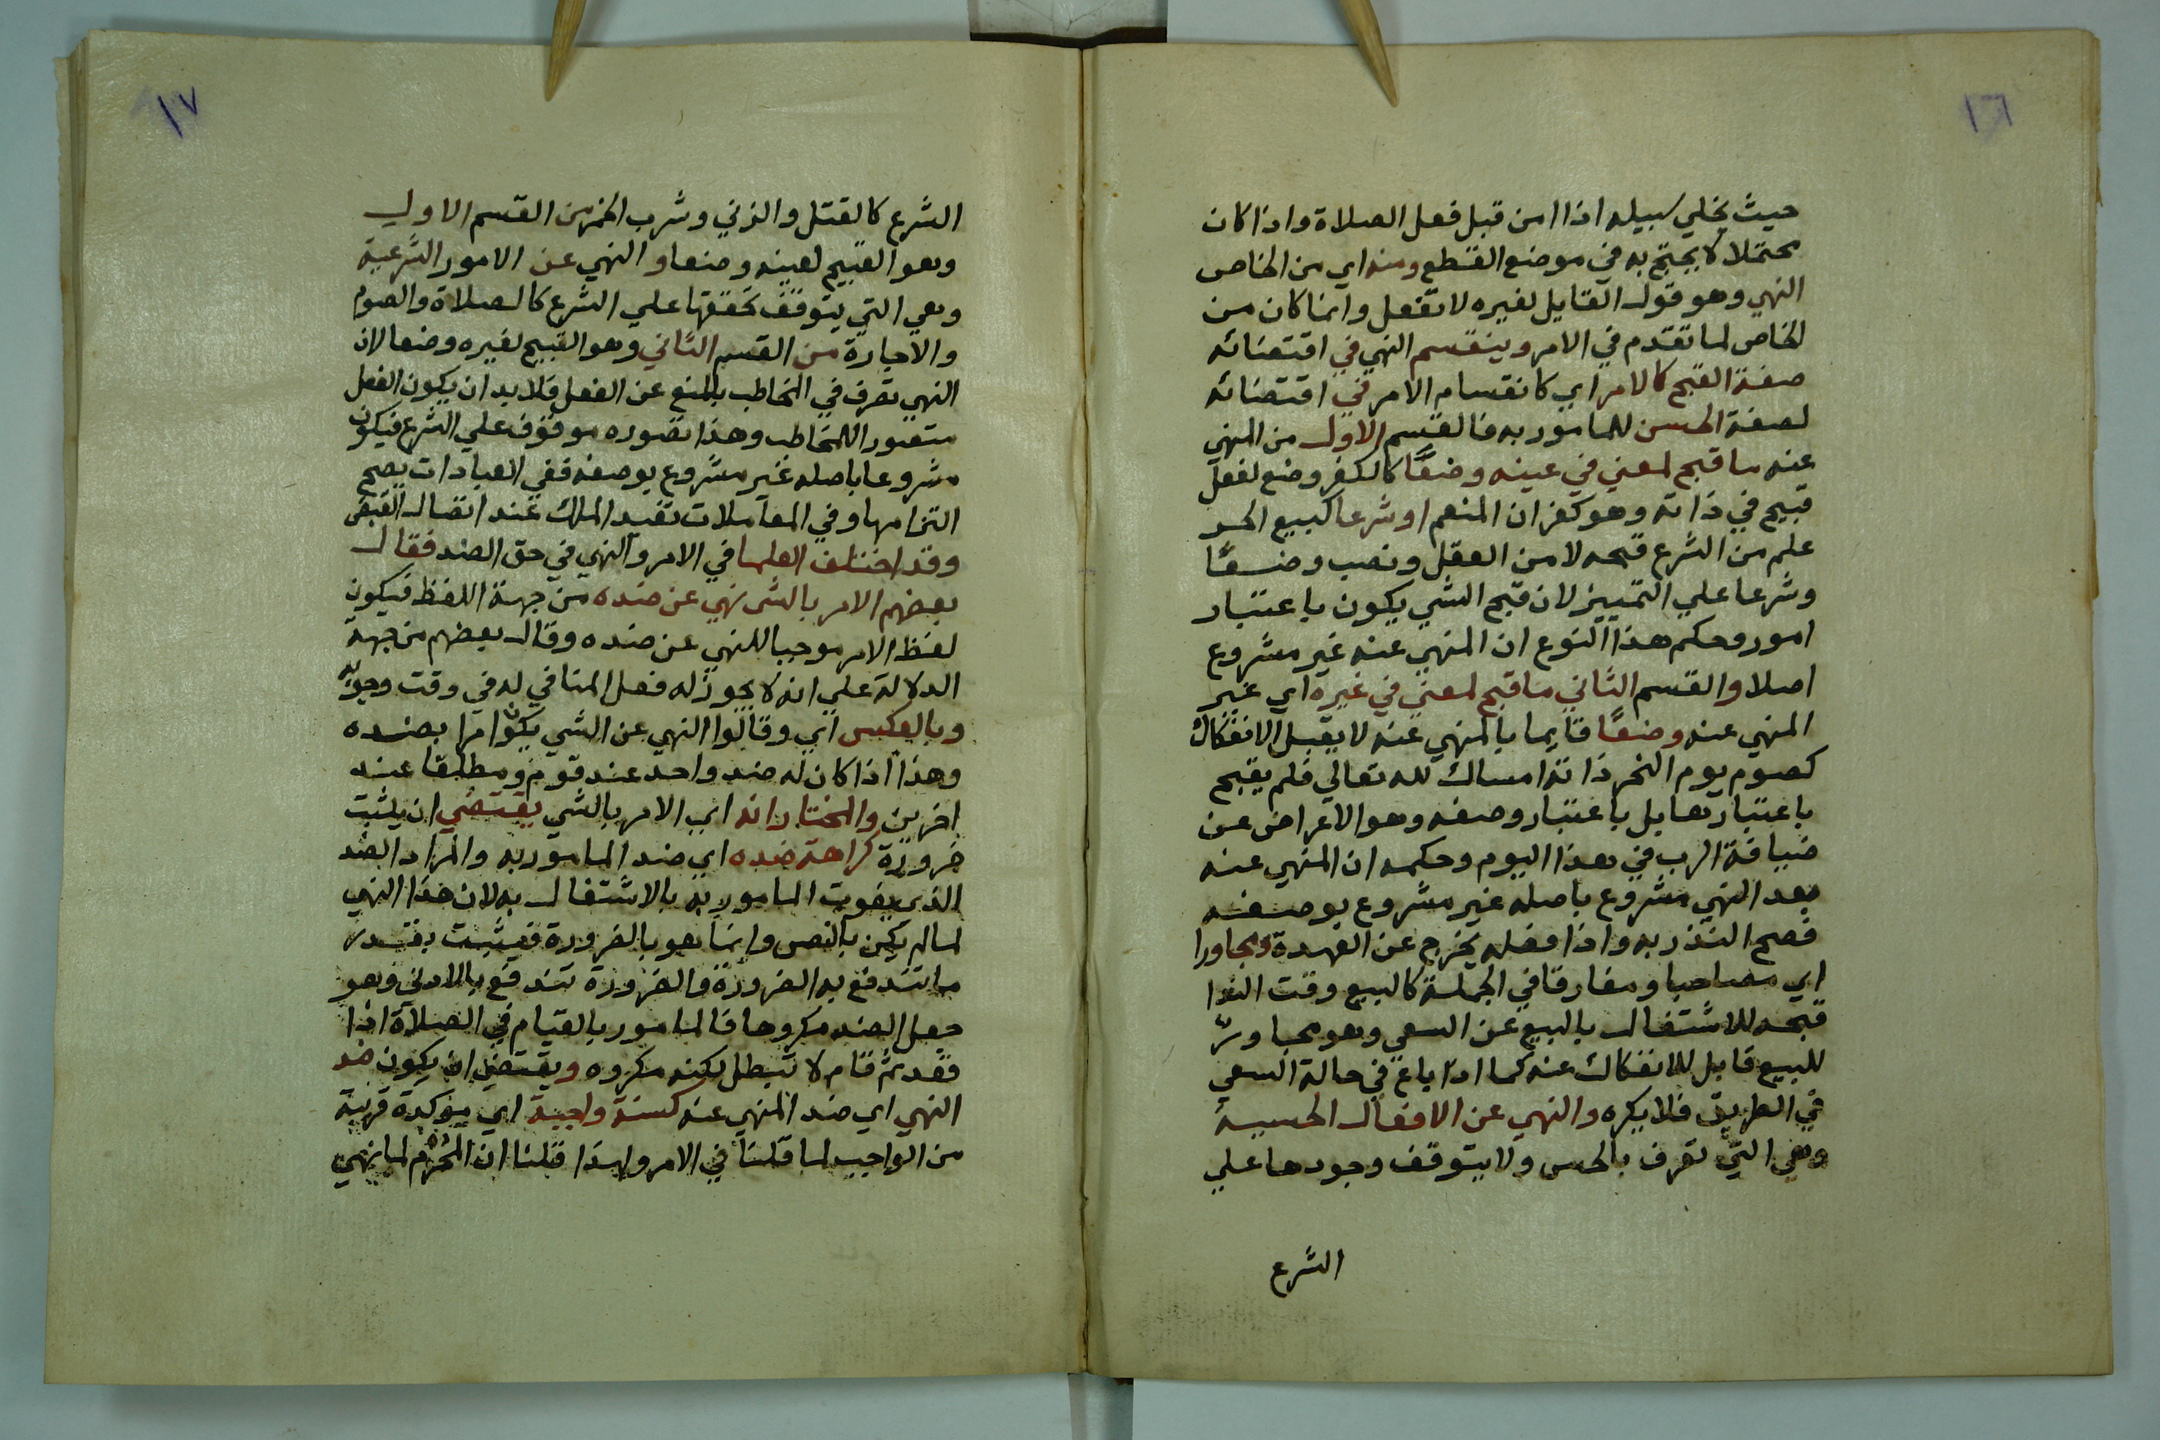 ١٦
حيث يخلي سبيله اذا امن قبل فعل الصلاة واذا كان
محتملا لا يحتج به في موضع القطع ومنه اي من الخاص
النهي وهو قول القايل لغيره لا تفعل وانما كان من
الخاص لما تقدم في الامر وينقسم النهي في اقتضائه
صفة القبح كالامر اي كانقسام الامر في اقتضائه
لصفة الحسن للمامور به فالقسم الاول من المنهي
عنه ما قبح لمعني في عينه وضعًا كالكفر وضع لفعل
قبيح في ذاته وهو كفران المنعم او شرعا كبيع الحر
علم من الشرع قبحه لا من العقل ونصب وضعًا
وشرعا علي التمييز لان قبح الشي يكون باعتبار
امور وحكم هذا النوع ان المنهي عنه غير مشروع
اصلا والقسم الثاني ما قبح لمعني في غيره اي غير
المنهي عنه وضعًا قايما بالمنهي عنه لا يقبل الانفكاك
كصوم يوم النحر ذاته امساك لله تعالي فلم يقبح
باعتبارها بل باعتبار وصفه وهو الاعراض عن
ضيافة الرب في هذا اليوم وحكمه ان المنهي عنه
بعد النهي مشروع باصله غير مشروع بوصفه
فصح النذر به واذا فعله يخرج عن العهدة ومجاورا
اي مصاحبا ومفارقا في الجملة كالبيع وقت الندا
قبحه للاشتغال بالبيع عن السعي وهو مجاور
للبيع قابل للانفكاك عنه كما اذا باع في حالة السعي
في الطريق فلا يكره والنهي عن الافعال الحسية
وهي التي تعرف بالحس ولا يتوقف وجودها علي
الشرع
١٧
الشرع كالقتل والزني وشرب الخمر من القسم الاول
وهو القبيح لعينه وضعا والنهي عن الامور الشرعية
وهي التي يتوقف تحققها علي الشرع كالصلاة والصوم
والاجارة من القسم الثاني وهو القبيح لغيره وضعا لان
النهي تصرف في المخاطب بالمنع عن الفعل فلا بد ان يكون الفعل
متصورا للمخاطب وهذا تصوره موقوف علي الشرع فيكون
مشروعا باصله غير مشروع بوصفه ففي العبادات يصح
التزامها وفي المعاملات تفيد الملك عند اتصال القبض
وقد اختلف العلما في الامر والنهي في حق الضد فقال
بعضهم الامر بالشي نهي عن ضده من جهة اللفظ فيكون
لفظ الامر موجبا للنهي عن ضده وقال بعضهم من جهة
الدلالة علي انه لا يجوز له فعل المنافي له في وقت وجوبه
وبالعكس اي وقالوا النهي عن الشي يكون امرا بضده
وهذا اذا كان له ضد واحد عند قوم ومطلقا عند
اخرين والمختار انه اي الامر بالشي يقتضي ان يثبت
ضرورة كراهة ضده اي ضد المامور به والمراد الضد
الذي يفوت المامور به بالاشتغال به لان هذا النهي
لما لم يكن بالنص وانما هو بالضرورة فيثبت بقدر
ما تندفع به الضرورة والضرورة تندفع بالادني وهو
جعل الضد مكروها فالمامور بالقيام في الصلاة اذا
قعد ثم قام لا تبطل لكنه مكروه ويقتضي ان يكون ضد
النهي اي ضد المنهي عنه كسنة واجبة اي موكدة قريبة
من الواجب لما قلنا في الامر ولهذا قلنا ان المحرم لما نهي